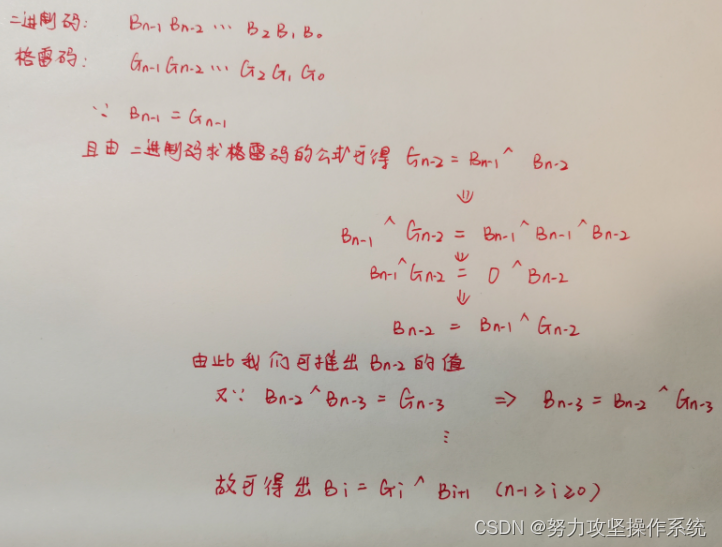 二进制码: Bn-1 Bn-2 ··· B2 B1 B0
格雷码: Gn-1 Gn-2 ··· G2 G1 G0
∵ Bn-1 = Gn-1
且由 二进制码求格雷码的公式可得 Gn-2 = Bn-1 ^ Bn-2
⇓
Bn-1 ^ Gn-2 = Bn-1 ^ Bn-1 ^ Bn-2
⇓
Bn-1 ^ Gn-2 = 0 ^ Bn-2
⇓
Bn-2 = Bn-1 ^ Gn-2
由此我们可推出 Bn-2 的值
又∵ Bn-2 ^ Bn-3 = Gn-3 => Bn-3 = Bn-2 ^ Gn-3
⋮
故可得出 Bi = Gi ^ Bi+1 (n-1≥i≥0)
CSDN @努力攻坚操作系统